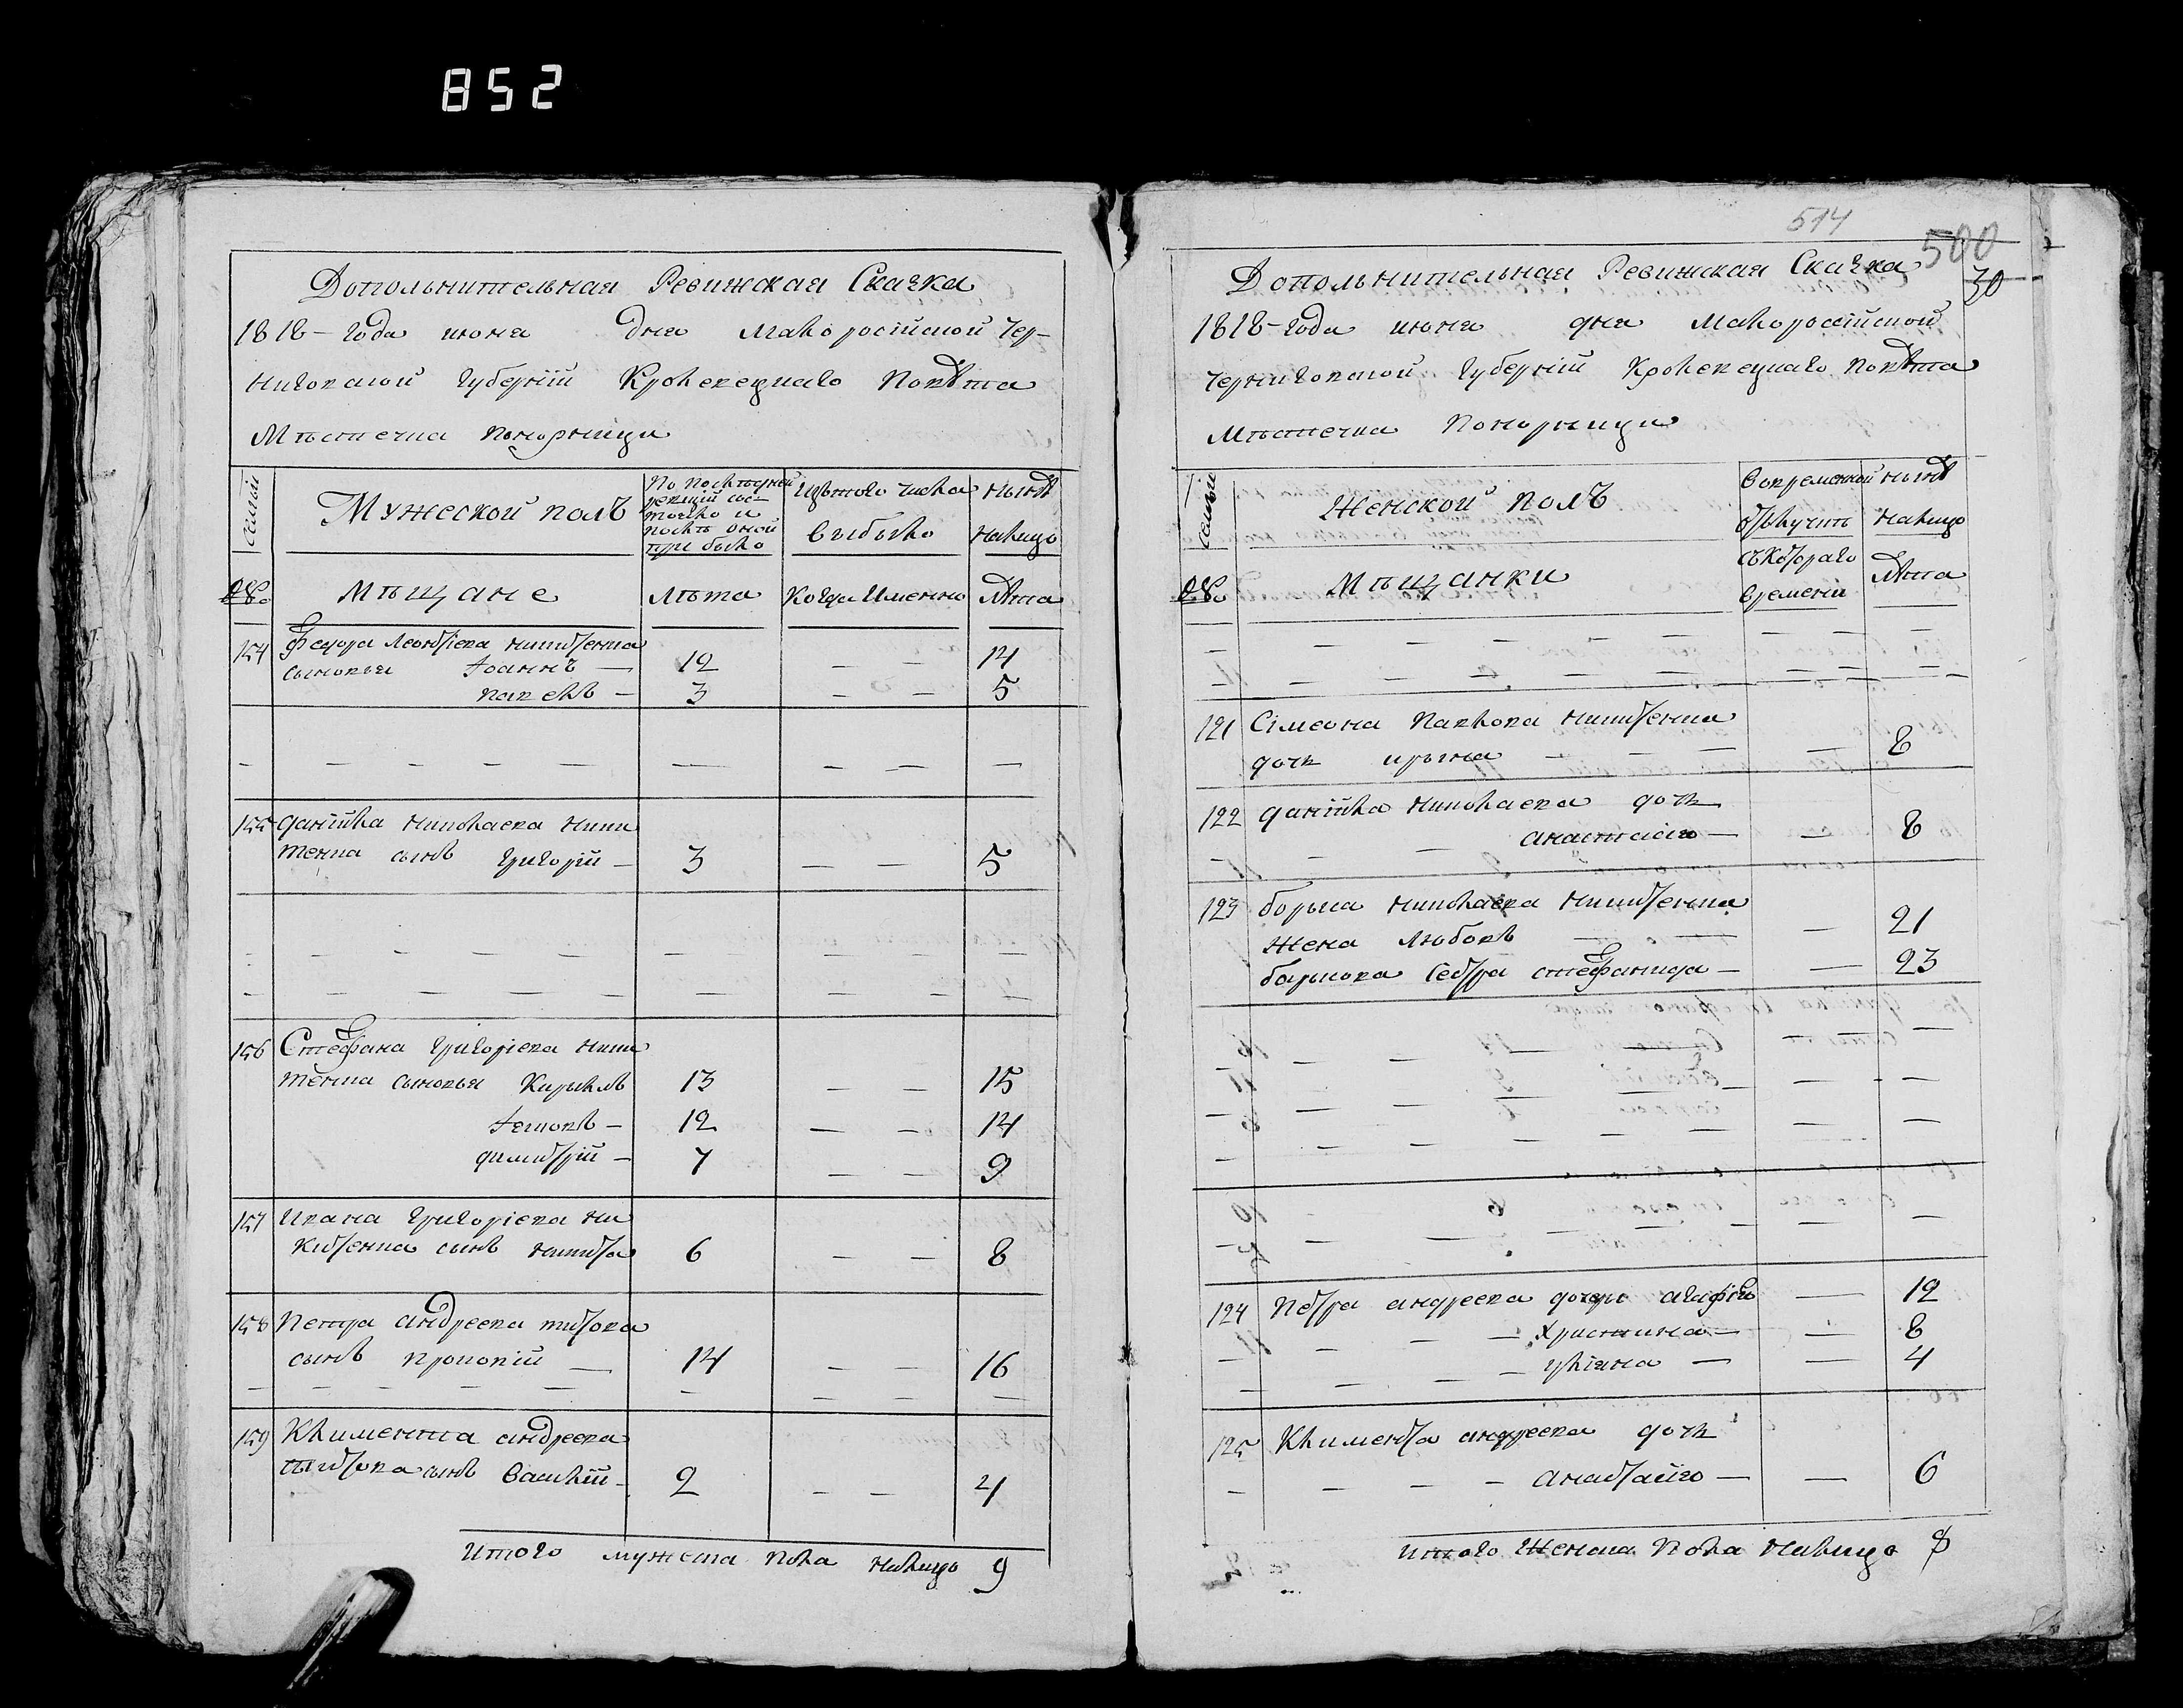 852
Дополнительная Ревижская Сказка
1818-года июня дня Малоросiйской Чер-
ниговской Губернiи Кролевецкаго Повѣта
Мѣстечка Понорници
Семьи
Мужеской полъ
По послѣдней
ревизiи сос-
тояло и
послѣ оной
прибыло
Изътого числа
выбыло
Нынѣ
налицо
№
Мѣщане
Лѣта
Когда Именно
Лѣта
154 Федора Леонтiева Никитенка
сыновья Iоаннъ — 12 — — 14
Павелъ — 3 — — 5
155 Данiйла Николаева Ники
тенка сынъ Григорiй — 3 — — 5
156 Стефана Григорiева Ники
тенка сыновья Кирылъ 13 — — 15
Iаковъ — 12 — — 14
Димитрiй — 7 — — 9
157 Ивана Григорiева Ни
китенка сынъ Никита 6 — — 8
158 Петра Андреева Титова
сынъ Прокопiй — 14 — — 16
159 Климента Андреева
Титова сынъ Василiй — 2 — — 4
Итого мужеска пола налицо 9
514
500
30
Дополнительная Ревижская Сказка
1818-года июня дня Малоросiйской
Черниговской Губернiи Кролевецкаго Повѣта
Мѣстечка Понорници
Семьи
Женской полъ
Вовременной
отлучкѣ
Нынѣ
налицо
№
Мѣщанки
съкотораго
времени
Лѣта
121 Сiмеона Павлова Никитенка
дочь Ирына — — — 8
122 Данiйла Николаева дочь
Анастасiя — — 8
123 Борыса Николаева Никитенка
жена Любовь — — — 21
Борысова сестра Стефанида — — 23
124 Петра Андреева дочери Агафiя — 12
Христина — — 8
Улiяна — — 4
125 Климента Андреева дочь
Анастасiя — — 6
Итого Женска Пола Налицо 8